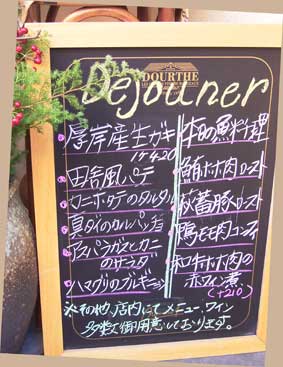 DOURTHE
Dejouner
厚岸産生ガキ
1P420
田舎風パテ
カニ・ホタテのタルタル
真ダイのカルパッチョ
アスパラガスとカニ
のサラダ
ハマグリのブルギニョン
本日の魚料理
鮪ホホ肉ロースト
秋蓄豚ロースト
鴨モモ肉コンフィ
和牛ホホ肉の
赤ワイン煮
(+210)
※その他、店内にてメニュー、ワイン
多数御用意しております。